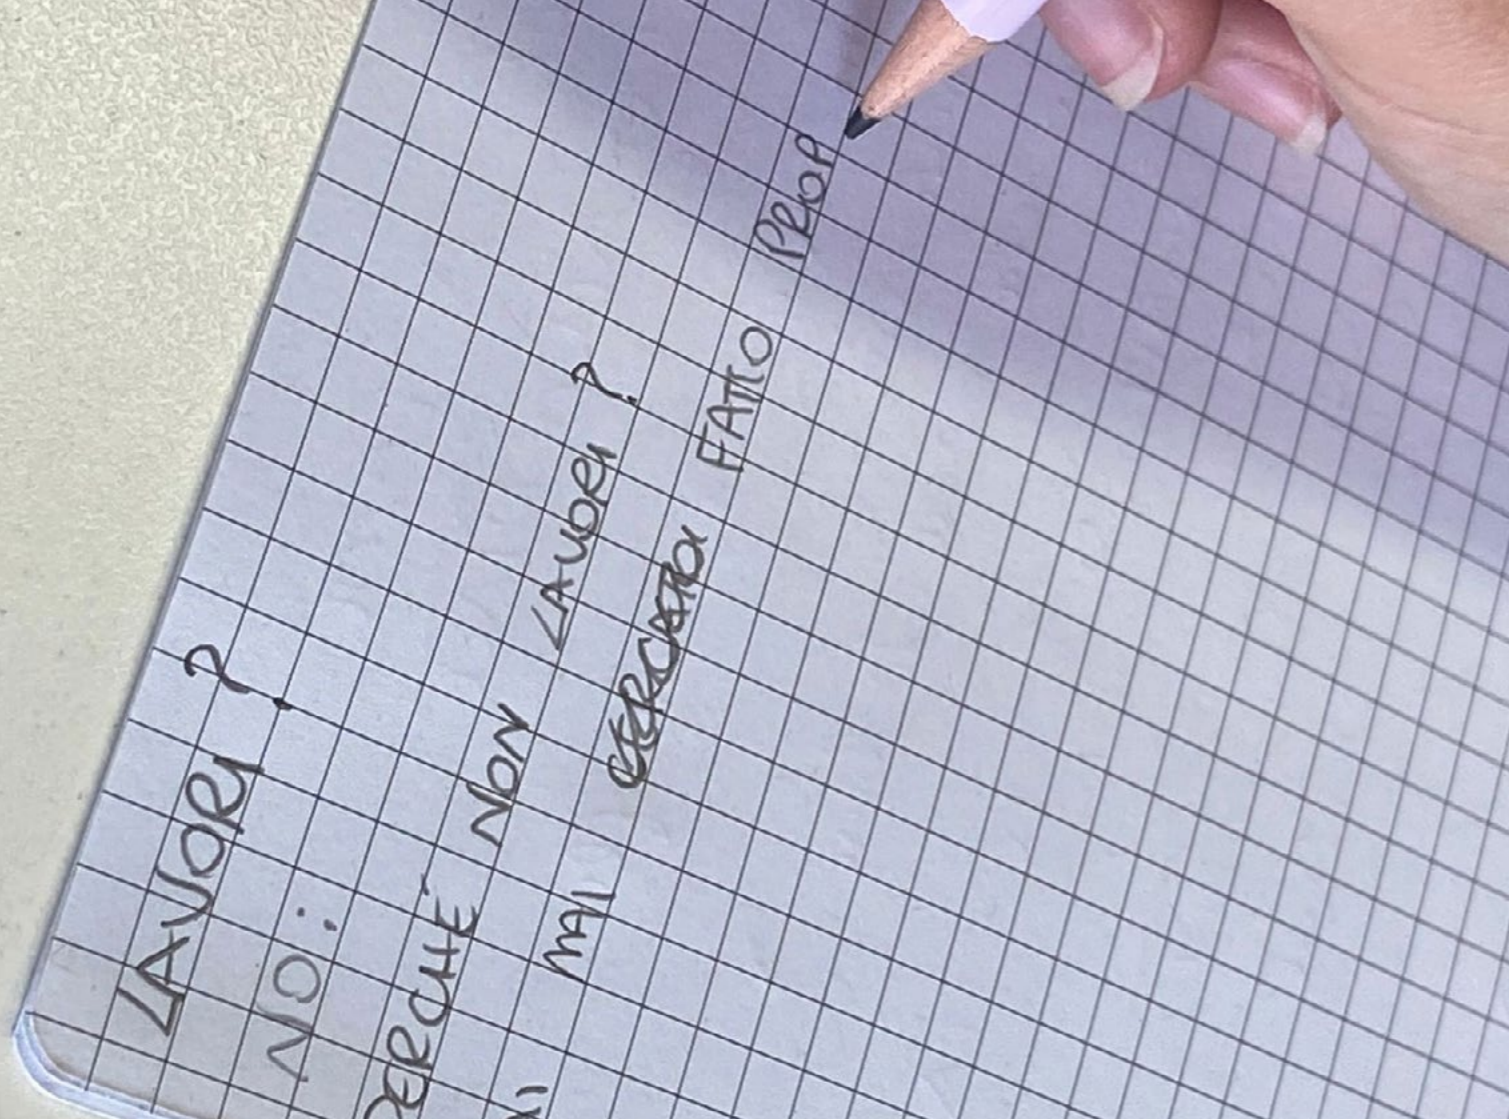 LAVORI?
NO:
PERCHÉ NON LAVORI?
MAI FATTO PROP